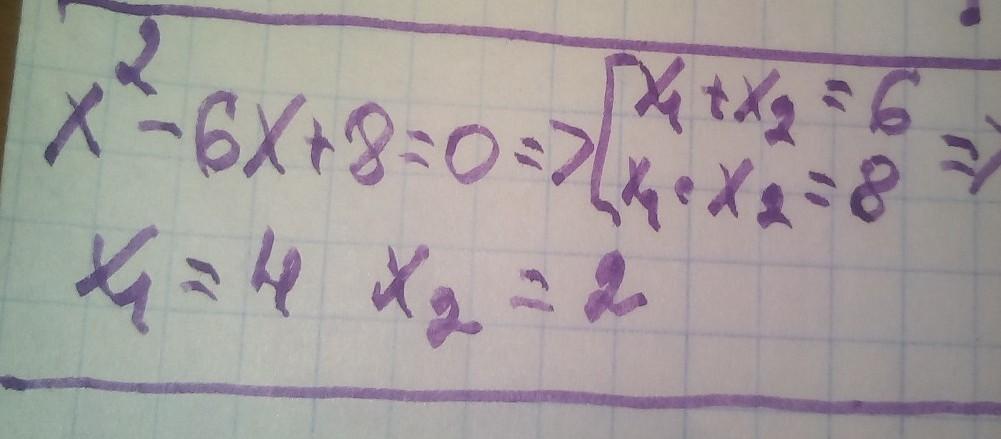 x² - 6x + 8 = 0 => [x₁ + x₂ = 6
x₁ · x₂ = 8 =>
x₁ = 4 x₂ = 2